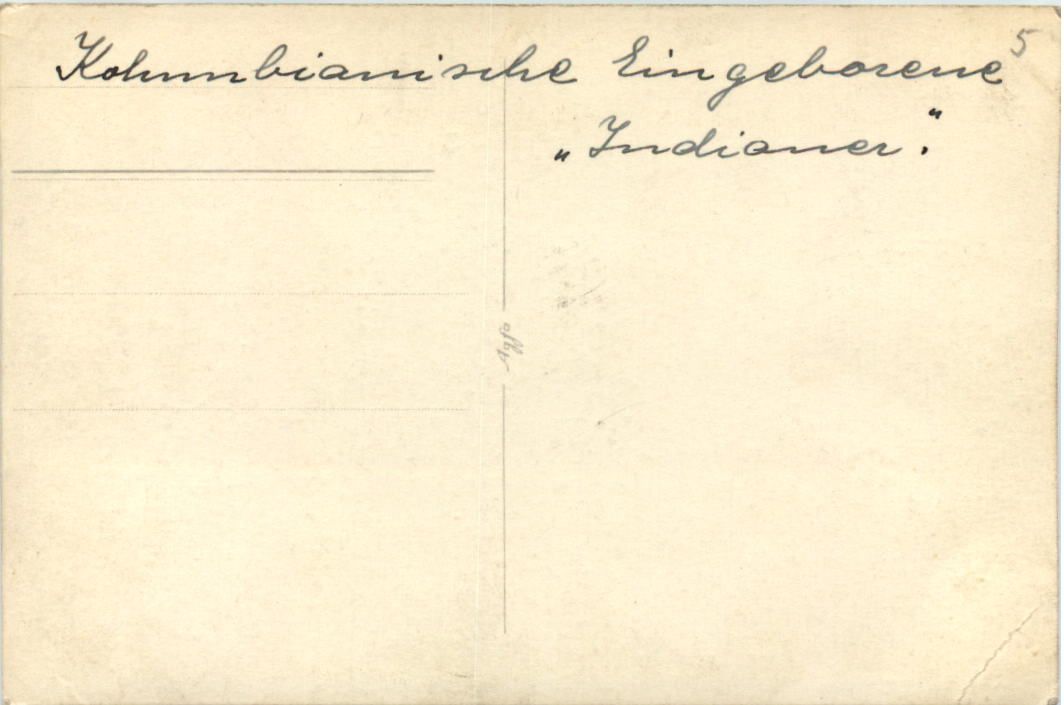 Kolumbianische Eingeborene
5
„Indianer."